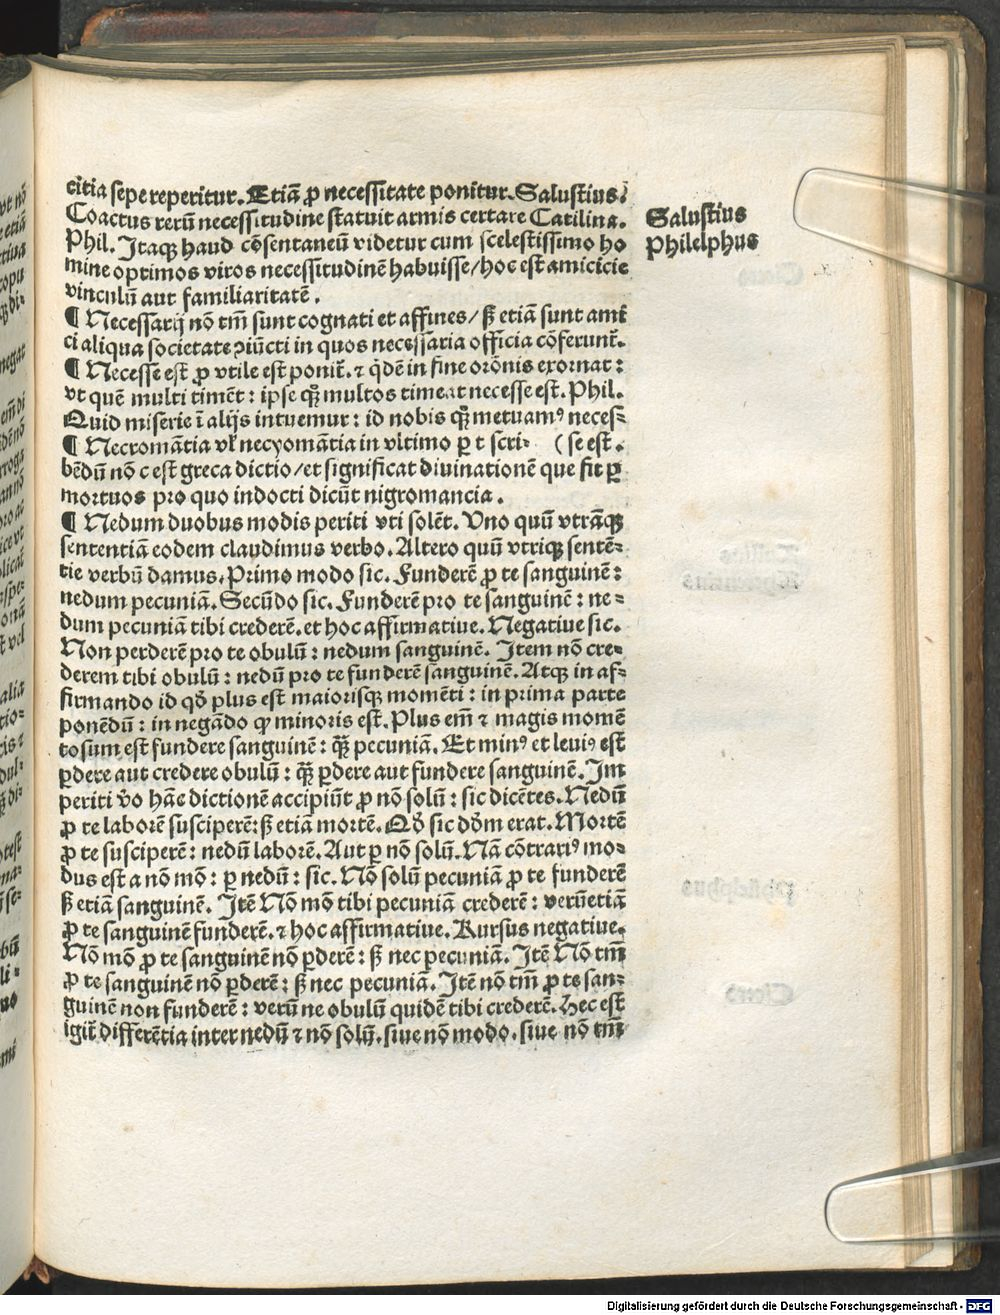 citia sepe reperitur. Etiā ꝓ necessitate ponitur. Salustius.
Coactus rerū necessitudine statuit armis certare Catilina.
Salustius
Phil. Itaqꝫ haud cōsentaneū videtur cum scelestissimo ho
Philelphus
mine optimos viros necessitudinē habuisse/hoc est amicicie
vinculū aut familiaritatē.
¶ Necessarij nō tm̄ sunt cognati et affines/sꝫ etiā sunt ami
ci aliqua societate ꝯiūcti in quos necessaria officia cōferunt̄.
¶ Necesse est ꝓ vtile est ponit̄. ⁊ qͥdē in fine orōnis exornat:
vt quē multi timēt: ipse qꝫ multos timeat necesse est. Phil.
Quid miserie ī alijs intuemur: id nobis qꝫ metuamꝰ neces-
¶ Necromātia vl̓ necyomātia in vltimo ꝑ t scri- (se est.
bēdū nō c est greca dictio/et significat diuinationē que fit ꝑ
mortuos pro quo indocti dicūt nigromancia.
¶ Nedum duobus modis periti vti solēt. Vno quū vtrāqꝫ
sententiā eodem claudimus verbo. Altero quū vtriqꝫ sentē-
tie verbū damus. Primo modo sic. Funderē ꝓ te sanguinē:
nedum pecuniā. Secūdo sic. Funderē pro te sanguinē: ne-
dum pecuniā tibi crederē. et hoc affirmatiue. Negatiue sic.
Non perderē pro te obulū: nedum sanguinē. Item nō cre-
derem tibi obulū: nedū pro te funderē sanguinē. Atqꝫ in af-
firmando id qđ plus est maiorisqꝫ momēti: in prima parte
ponēdū: in negādo qđ minoris est. Plus em̄ ⁊ magis momē
tosum est fundere sanguinē: qꝫ̄ pecuniā. Et minꝰ et leuiꝰ est
ꝑdere aut credere obulū: qꝫ̄ ꝑdere aut fundere sanguinē. Im
periti v̄o hāc dictionē accipiūt ꝓ nō solū: sic dicētes. Nedū
ꝓ te laborē susciperē: sꝫ etiā mortē. Qđ sic dđm erat. Mortē
ꝓ te susciperē: nedū laborē. Aut ꝑ nō solū. Nā cōtrariꝰ mo-
dus est a nō mō: ꝑ nedū: sic. Nō solū pecuniā ꝓ te funderē
sꝫ etiā sanguinē. Itē Nō mō tibi pecuniā crederē: verūetiā
ꝓ te sanguinē funderē. ⁊ hoc affirmatiue. Rursus negatiue.
Nō mō ꝓ te sanguinē nō ꝑderē: sꝫ nec pecuniā. Itē Nō tm̄
ꝓ te sanguinē nō ꝑderē: sꝫ nec pecuniā. Itē nō tm̄ ꝓ te san-
guinē non funderē: verū ne obulū quidē tibi crederē. Hec est
igit̄ differētia inter nedū ⁊ nō solū. siue nō modo. siue nō tm̄
Digitalisierung gefördert durch die Deutsche Forschungsgemeinschaft - DFG